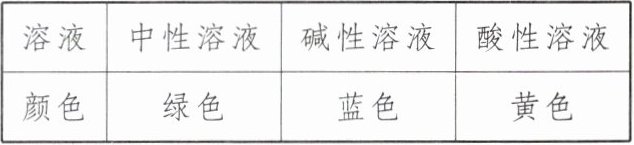 溶液 中性溶液 碱性溶液 酸性溶液
颜色 绿色 蓝色 黄色